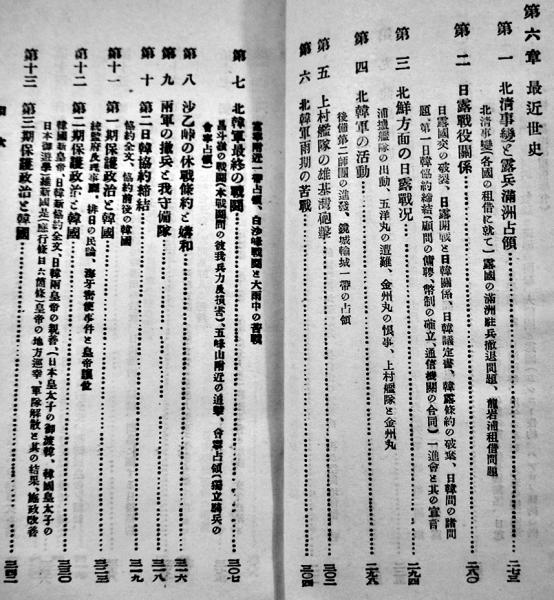 第六章 最近世史
第一 北清事變と露兵滿洲占領……二七三
北清事變各國の租借に就て)露國の滿洲駐兵撤退問題、龍岩浦租借問題
第二 日露戰役關係……二八〇
日露國交の破裂、日露開戰と日韓關係、日韓議定書、韓露條約の破棄、日韓間の諸問
題(第一日韓協約締結、顧問の傭聘、幣制の確立、通信機關の合同)一進會と其の宣言
第三 北鮮方面の日露戰況……二九四
浦鹽艦隊の出動、五洋丸の遭難、金州丸の恨事、上村艦隊と金州丸
第四 北韓軍の活動……二九九
後備第二師團の進發、鏡城輸城一帶の占領
第五 上村艦隊の雄基灣砲擊……三〇二
第六 北韓軍雨期の苦戰……三〇四
第七 北韓軍最終の戰鬪……三〇七
富寧附近一帶占領、白沙峰戰鬪と大雨中の苦戰
昌斗嶺の戰鬪(本戰鬪間の彼我兵力及損害)、五峰山附近の追擊、會寧占領(獨立騎兵の
會寧占領)
第八 沙乙峠の休戰條約と媾和……三一六
第九 兩軍の撤兵と我守備隊……三一八
第十 第二日韓協約締結……三一九
協約全文、協約前後の韓國
第十一 第一期保護政治と韓國……三二三
統監府及理事廳、排日の民論、海牙密使事件と皇帝讓位
第十二 第二期保護政治と韓國……三三〇
韓國新皇帝、日韓新協約全文、日韓兩皇帝の親善、(日本皇太子の御渡韓、韓國皇太子の
日本御遊學)維新國是(應行條目六箇條)皇帝の地方巡幸、軍隊解散と其の結果、施政改善
第十三 第三期保護政治と韓國……三四二